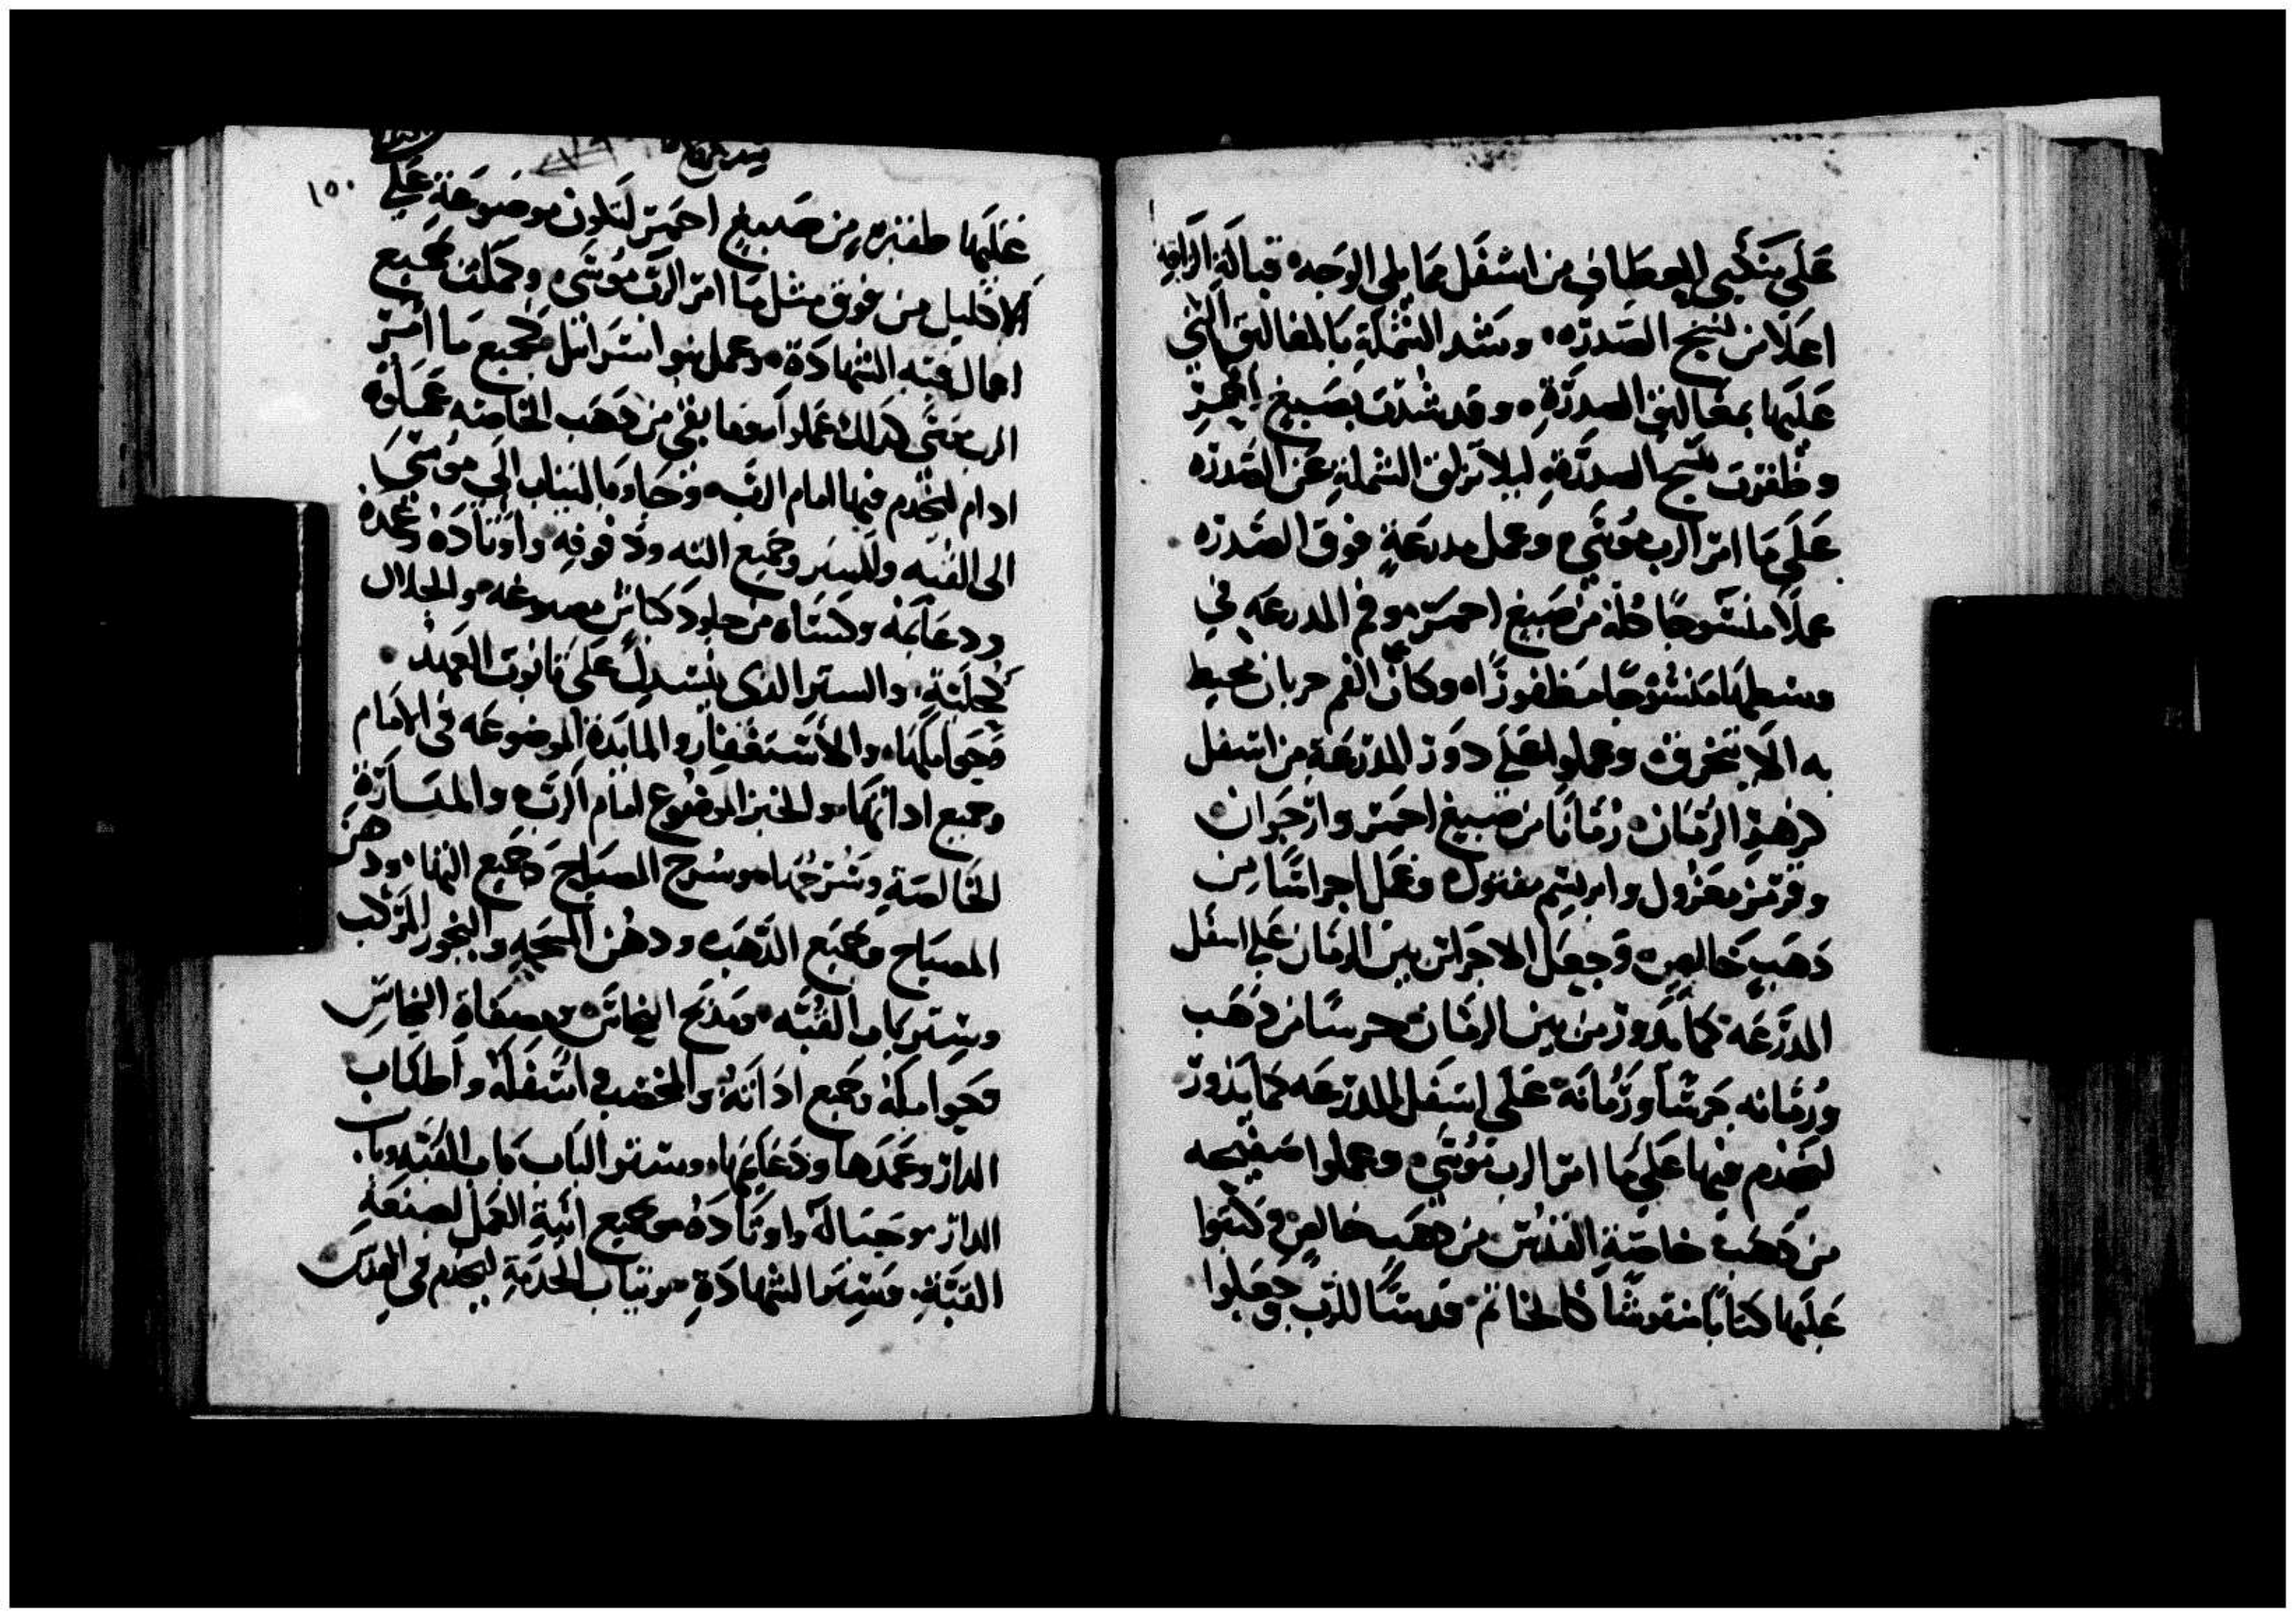 علي منكبي العطاف من اسفل مما يلي الوجه قبالة الراقبه
اعلا من نسج الصدره وشد الشملة بالمغاليق التي
عليها بمغاليق الصدرة وقد شدت بصبيغ احمر
وظفرت بنسج الصدرة ليلا تزلق الشملة عن الصدره
علي ما امر الرب موسي وعمل مدرعة فوق الصدره
عملا منسوجا كله من صبيغ احمر وفم المدرعه في
وسطها منسوجا مظفورا وكان الفم حربان محيط
به الا يتخرق وعملوا علي دور المدرعة من اسفل
كزهرة الرمان رمانا من صبيغ احمر وارجوان
وقرمز مغزول وابريسم مفتول وعمل اجراسا من
ذهب خالص وجعل الاجراس بين الرمان علي اسفل
المدرعه كما يدور من بين الرمان جرسا من ذهب
ورمانه جرسا ورمانه علي اسفل المدرعه كما يدور
ليخدم فيها علي ما امر الرب موسي وعملوا صفيحه
من ذهب خاصة القدس من ذهب خالص وكتبوا
عليها كتابا منقوشا كالخاتم قدسا للرب وجعلوا
١٥٠
عليها طفيره من صبيغ احمر لتكون موضوعة علي
الاكليل من فوق مثل ما امر الرب موسي وكملت جميع
اعمال قبه الشهادة وعمل بنو اسرائيل جميع ما امر
الرب موسي كذلك عملوا وما بقي من ذهب الخاصه عملوه
ادام ليخدم فيها امام الرب وجاوا بالثياب الي موسي
الى القبه وللستر وجميع انيته ودفوفه واوتاده وعمده
ودعايمه وكساه من جلود كباش مصبوغه والجلال
كحلية والستر الذي ينسدل علي تابوت العهد
وحواملها والاستغفار والمايدة الموضوعه في الامام
وجميع اداتها والخبز الموضوع امام الرب والمنارة
الخالصة وسرجها وسرج المصباح وجميع انيتها ودهن
المصباح ومذبح الذهب ودهن المسحه والبخور المركب
وستر باب القبه ومذبح النحاس ومصفاة النحاس
وحوامله وجميع اداته والمخضب واسفله واطناب
الدار وعمدها ودعايمها وستر الباب باب القبه وباب
الدار وحباله واوتاده وجميع انية العمل لصنعة
القبة قبة الشهادة وثياب الخدمة ليخدم في القدس